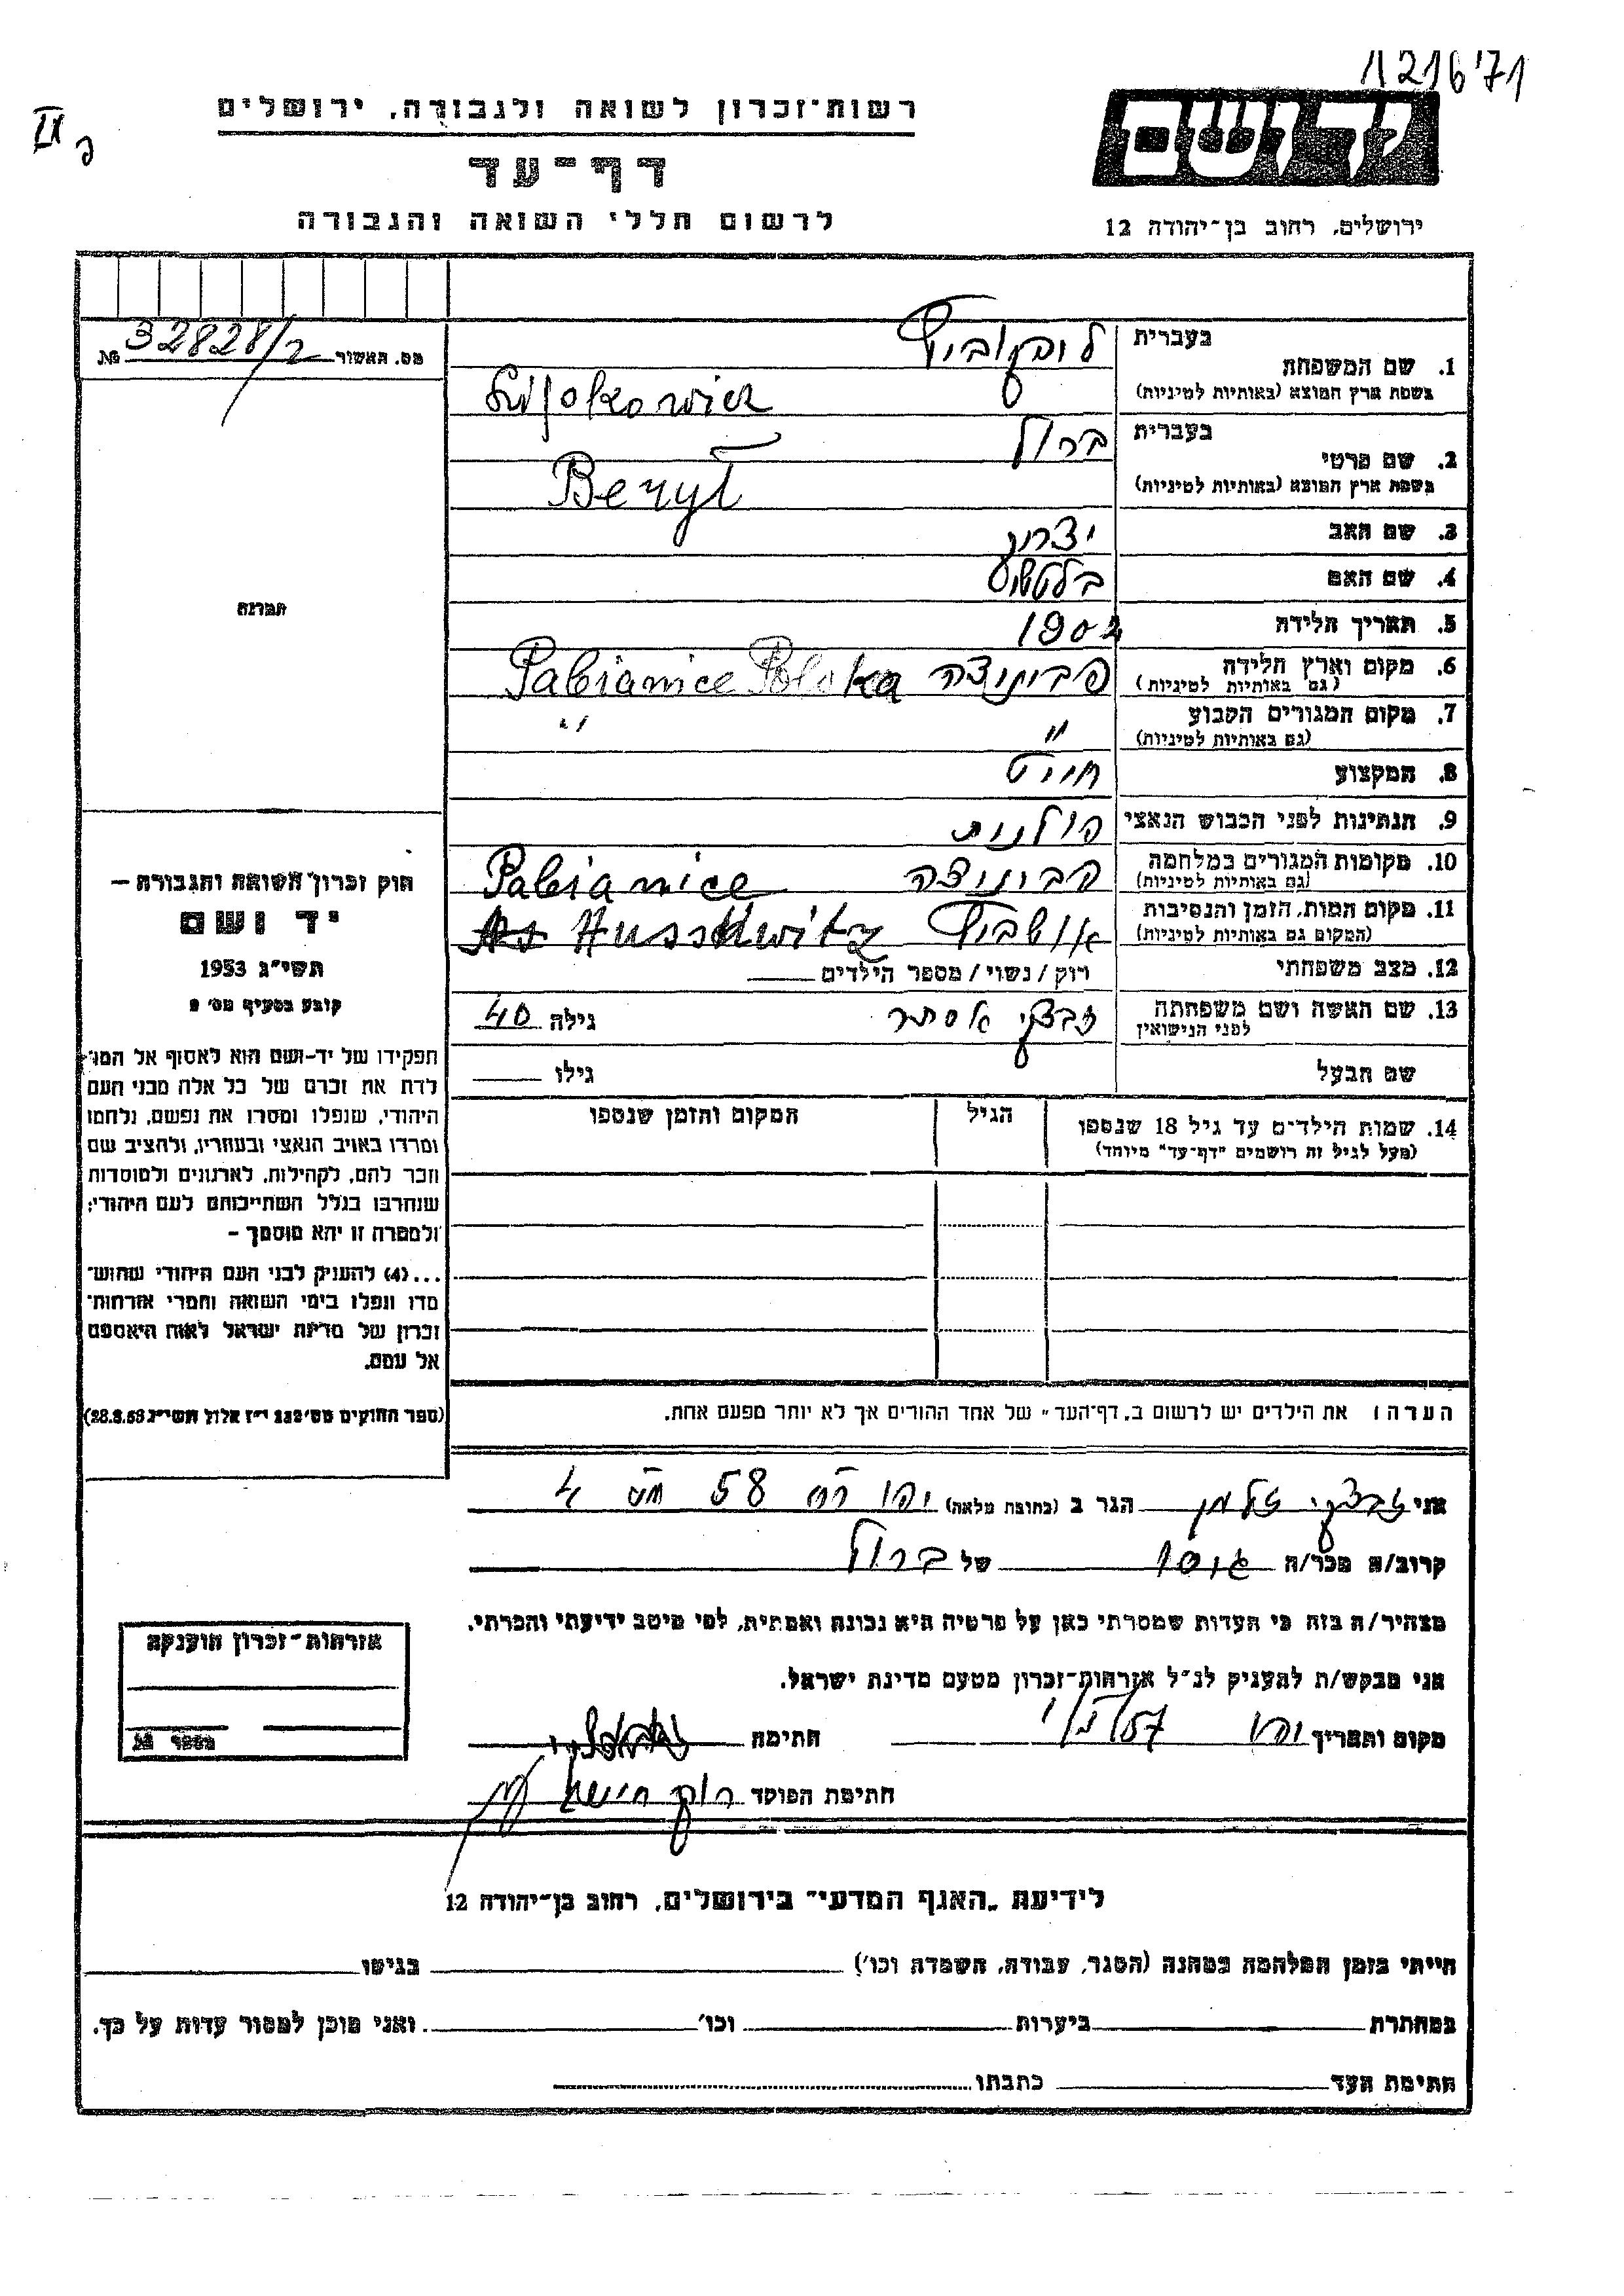 121671
רשות־זכרון לשואה ולגבורה, ירושלים
דף־עד
לרשום חללי השואה והגבורה
יד ושם
ירושלים, רחוב בן־יהודה 12
מס. האשור 32828/2 №
1. שם המשפחה
בעברית
בשפת ארץ המוצא (באותיות לטיניות)
2. שם פרטי
בעברית ברול
בשפת ארץ המוצא (באותיות לטיניות) Beryl
3. שם האב
4. שם האם
5. תאריך הלידה 1902
6. מקום וארץ הלידה
(גם באותיות לטיניות) פביניצה Pabianice Polska
7. מקום המגורים הקבוע
(גם באותיות לטיניות) " "
8. המקצוע חייט
9. הנתינות לפני הכבוש הנאצי פולנית
10. מקומות המגורים במלחמה
(גם באותיות לטיניות) פביניצה Pabianice
11. מקום המות, הזמן והנסיבות
(המקום גם באותיות לטיניות) אושביץ Ausschwitz
12. מצב משפחתי רוק / נשוי / מספר הילדים
13. שם האשה ושם משפחתה
לפני הנישואין זבצקי אסתר גילה 40
שם הבעל גילו
14. שמות הילדים עד גיל 18 שנספו
(מעל לגיל זה רושמים "דף־עד" מיוחד)
הגיל
המקום והזמן שנספו
תמונה
חוק זכרון השואה והגבורה –
יד ושם
תשי"ג 1953
קובע בסעיף מס' 2
תפקידו של יד-ושם הוא לאסוף אל המו־
לדת את זכרם של כל אלה מבני העם
היהודי, שנפלו ומסרו את נפשם, נלחמו
ומרדו באויב הנאצי ובעוזריו, ולהציב שם
וזכר להם, לקהילות, לארגונים ולמוסדות
שנחרבו בגלל השתייכותם לעם היהודי;
ולמטרה זו יהא מוסמך –
...(4) להעניק לבני העם היהודי שהוש־
מדו ונפלו בימי השואה והמרי אזרחות־
זכרון של מדינת ישראל לאות היאספם
אל עמם.
(ספר החוקים מס' 132 י"ז אלול תשי"ג 28.8.53)
הערה: את הילדים יש לרשום ב„דף־העד" של אחד ההורים אך לא יותר מפעם אחת.
אני זבצקי זלמן הגר ב (כתובת מלאה) יפו 58 4
קרוב/ה מכר/ה גיסו של ברול
מצהיר/ה בזה כי העדות שמסרתי כאן על פרטיה היא נכונה ואמתית, לפי מיטב ידיעתי והכרתי.
אני מבקש/ת להעניק לנ"ל אזרחות־זכרון מטעם מדינת ישראל.
מקום ותאריך יפו חתימה
חתימת הפוקד
אזרחות־זכרון הוענקה
מספר №
לידיעת „האגף המדעי" בירושלים, רחוב בן־יהודה 12
הייתי בזמן המלחמה במחנה (הסגר, עבודה, השמדה וכו') בגיטו
במחתרת ביערות וכו' ואני מוכן למסור עדות על כך.
חתימת העד כתבתו